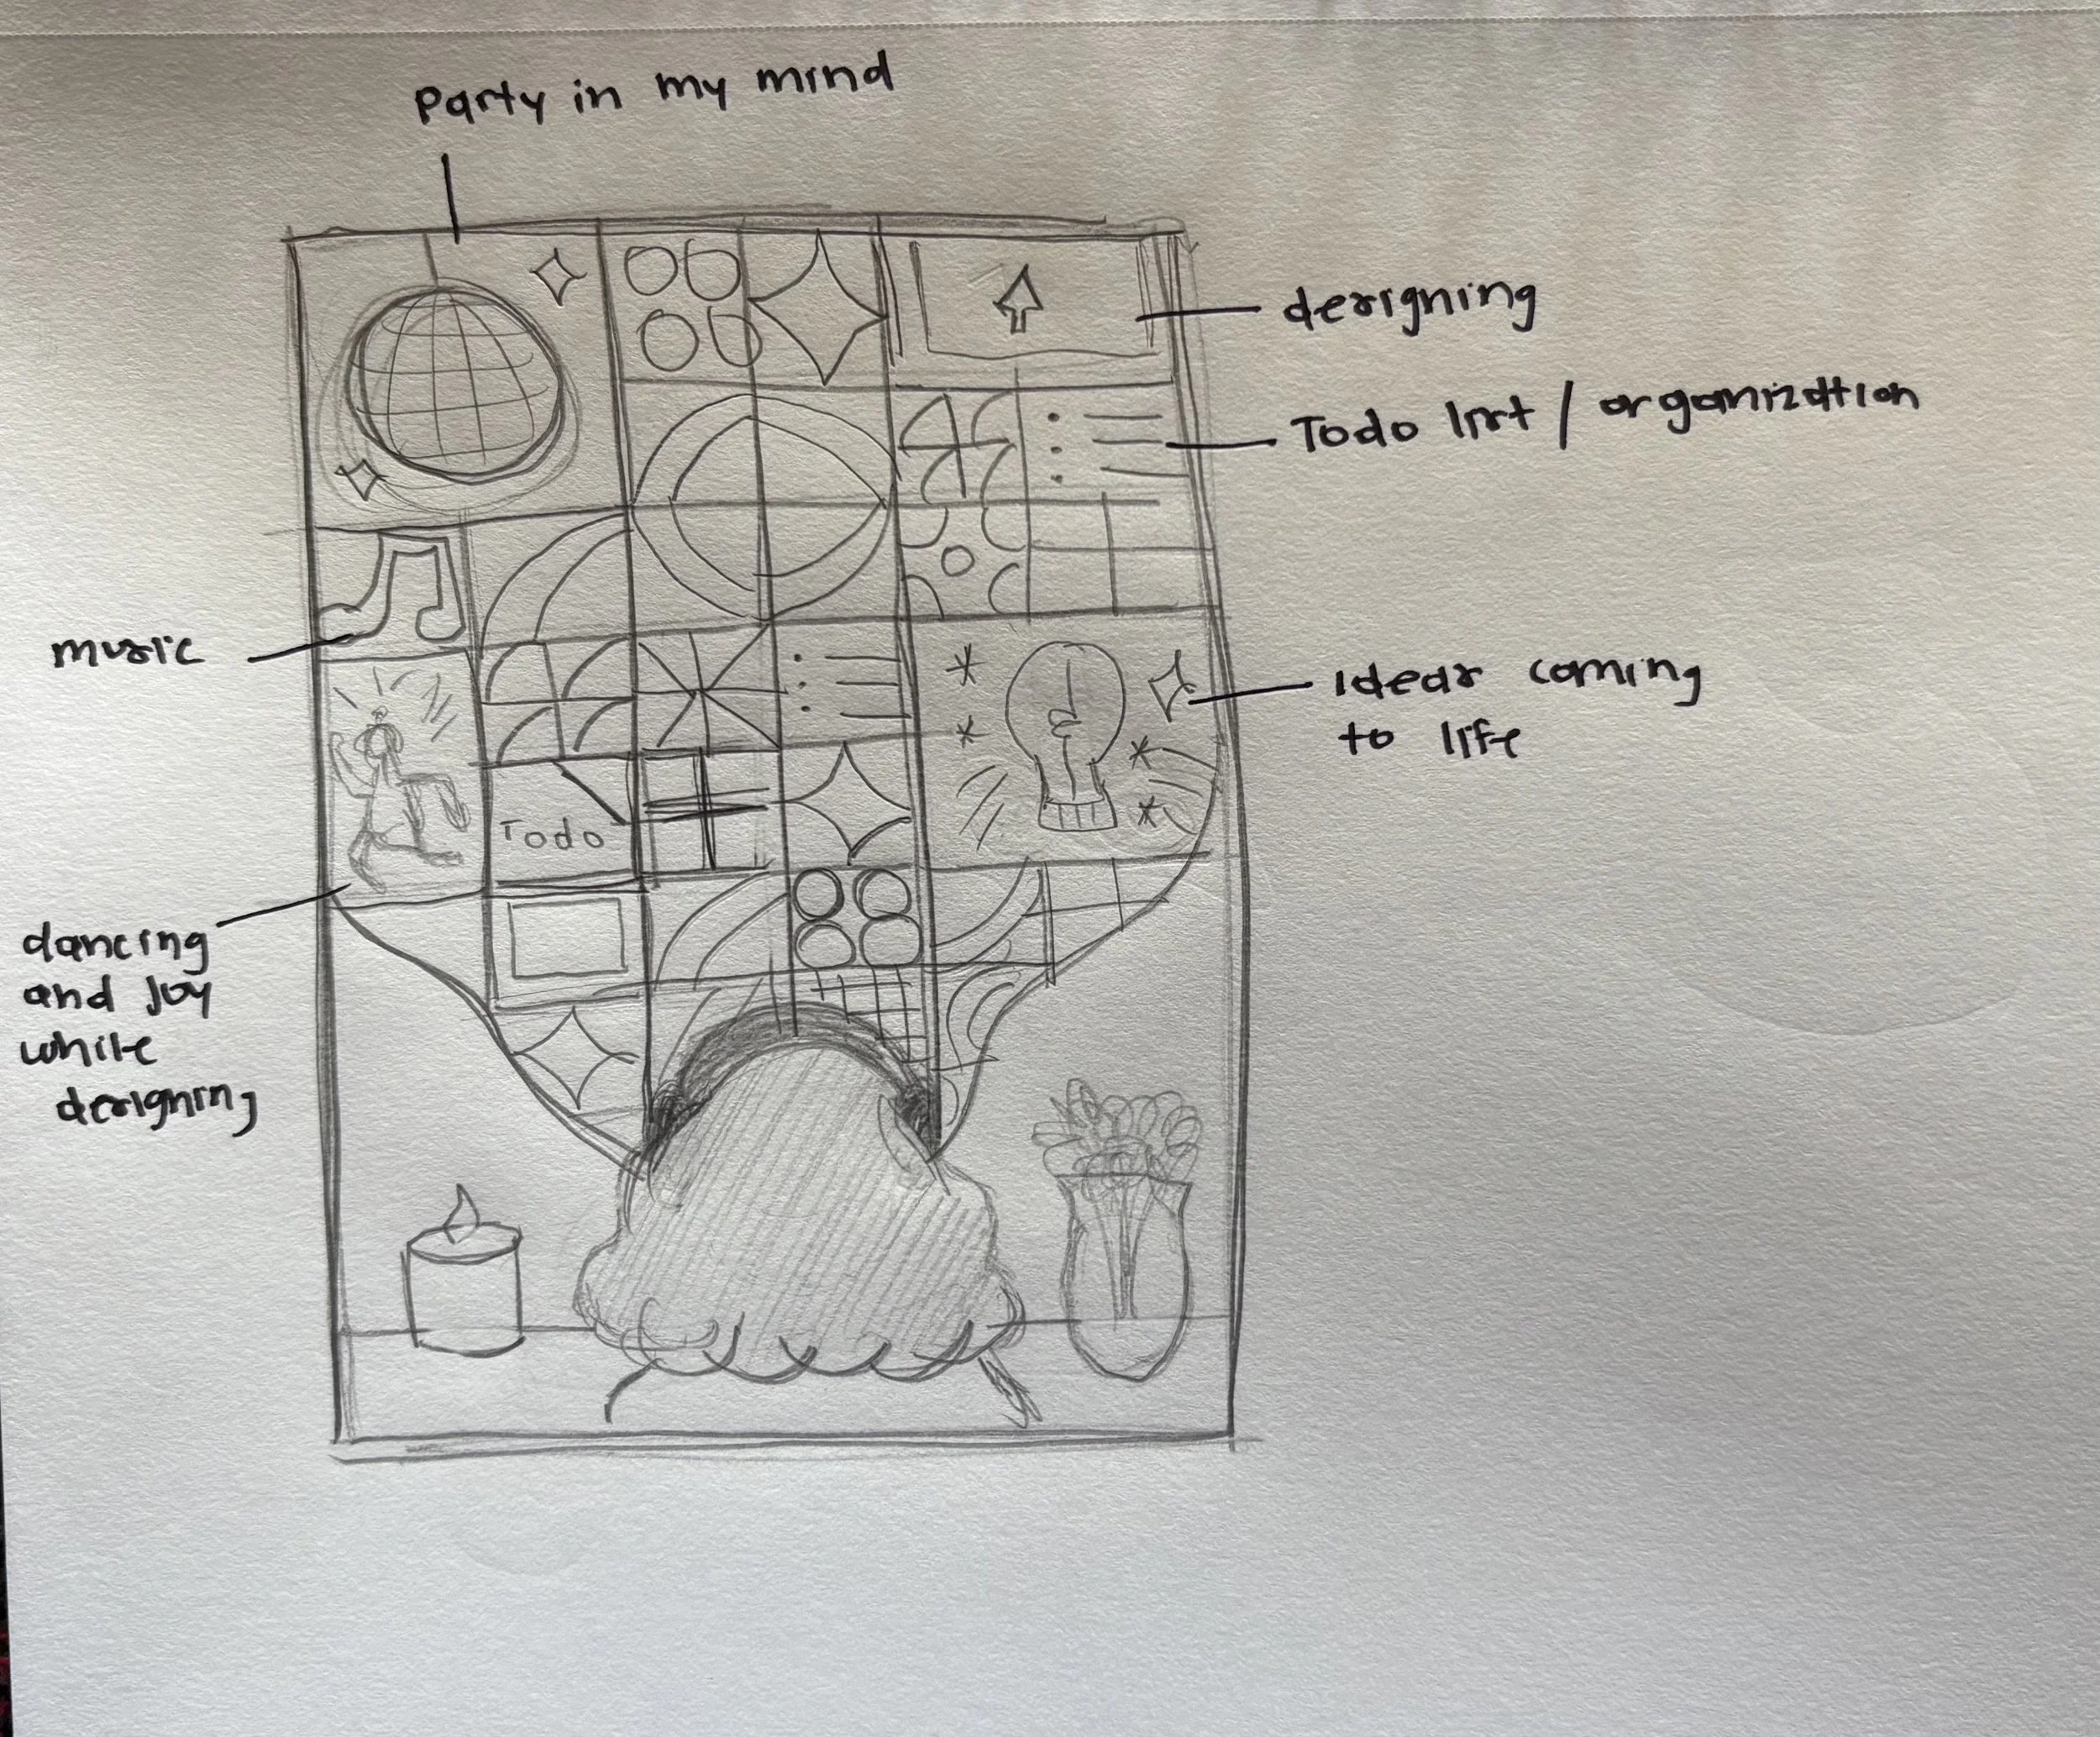 Party in my mind
designing
Todo list / organization
music
Ideas coming
to life
Todo
dancing
and joy
while
designing